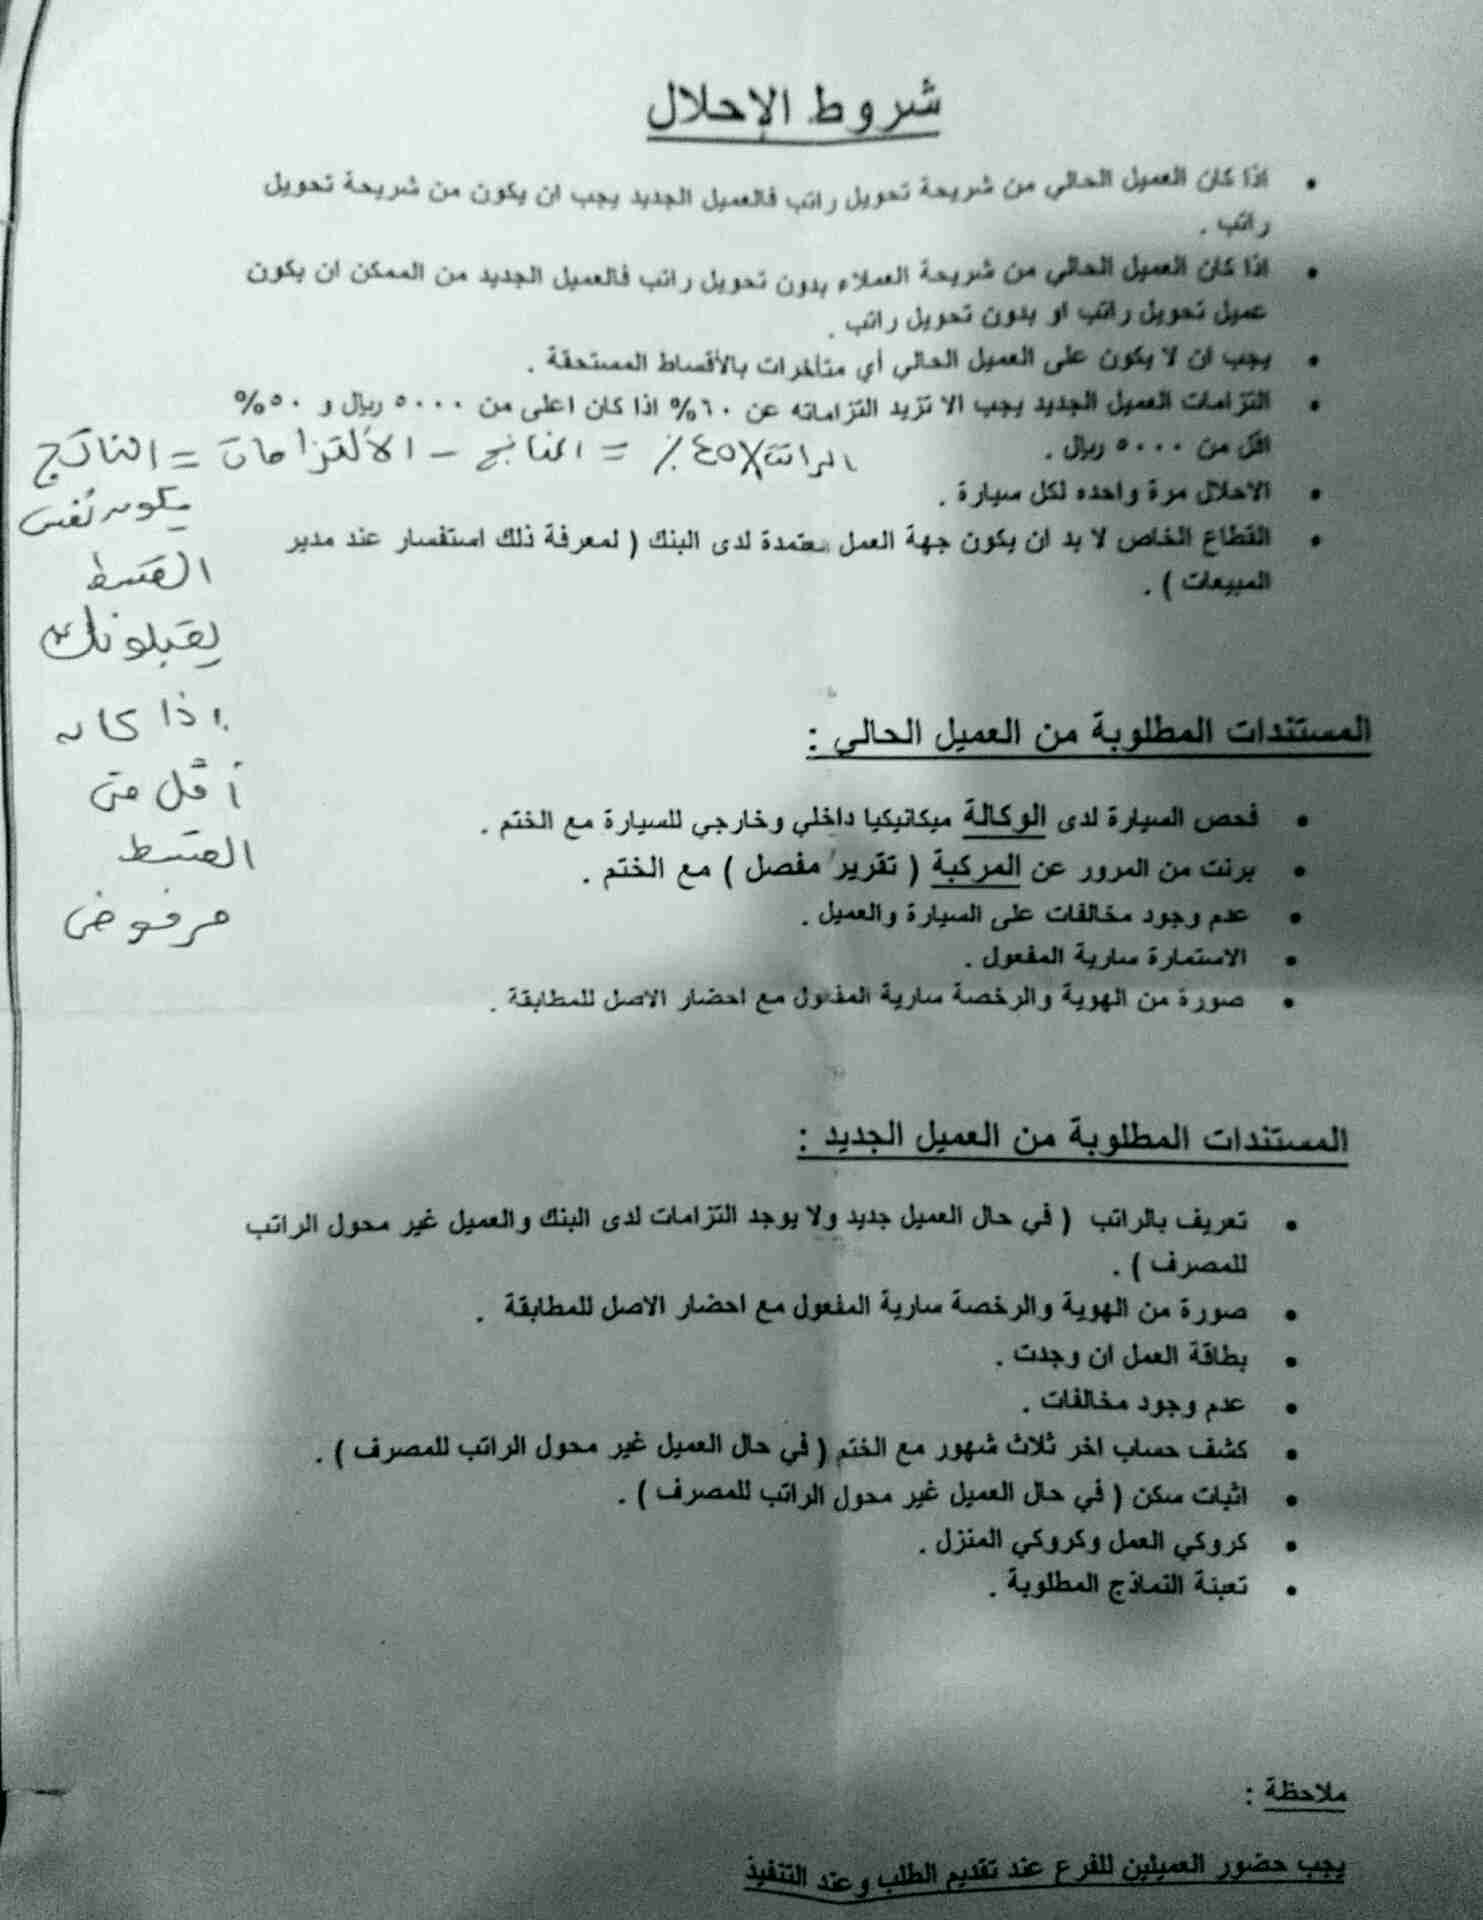 شروط الإحلال
• اذا كان العميل الحالي من شريحة تحويل راتب فالعميل الجديد يجب ان يكون من شريحة تحويل
راتب .
• اذا كان العميل الحالي من شريحة العملاء بدون تحويل راتب فالعميل الجديد من الممكن ان يكون
عميل تحويل راتب او بدون تحويل راتب .
• يجب ان لا يكون على العميل الحالي أي متأخرات بالأقساط المستحقة .
• التزامات العميل الجديد يجب الا تزيد التزاماته عن ٦٠% اذا كان اعلى من ٥٠٠٠ ريال و ٥٠%
اقل من ٥٠٠٠ ريال .
الراتب X ٤٥٪ = الناتج – الألتزامات = الناتج
يكون نفس
القسط
يقبلونك
إذا كان
أقل من
القسط
مرفوض
• الاحلال مرة واحده لكل سيارة .
• القطاع الخاص لا بد ان يكون جهة العمل معتمدة لدى البنك ( لمعرفة ذلك استفسار عند مدير
المبيعات ) .
المستندات المطلوبة من العميل الحالي :
• فحص السيارة لدى الوكالة ميكانيكيا داخلي وخارجي للسيارة مع الختم .
• برنت من المرور عن المركبة ( تقرير مفصل ) مع الختم .
• عدم وجود مخالفات على السيارة والعميل .
• الاستمارة سارية المفعول .
• صورة من الهوية والرخصة سارية المفعول مع احضار الاصل للمطابقة .
المستندات المطلوبة من العميل الجديد :
• تعريف بالراتب ( في حال العميل جديد ولا يوجد التزامات لدى البنك والعميل غير محول الراتب
للمصرف ) .
• صورة من الهوية والرخصة سارية المفعول مع احضار الاصل للمطابقة .
• بطاقة العمل ان وجدت .
• عدم وجود مخالفات .
• كشف حساب اخر ثلاث شهور مع الختم ( في حال العميل غير محول الراتب للمصرف ) .
• اثبات سكن ( في حال العميل غير محول الراتب للمصرف ) .
• كروكي العمل وكروكي المنزل .
• تعبئة النماذج المطلوبة .
ملاحظة :
يجب حضور العميلين للفرع عند تقديم الطلب وعند التنفيذ